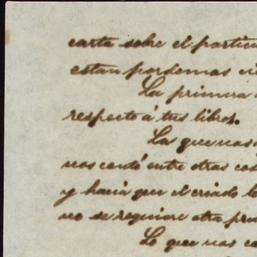 carta sobre el particu
estan pordemas ci
La primera
respecto á tus libros.
La que nos
nos contó entre otras cos
y hacía que el criado le
no se requiere otra pru
Lo que nos co